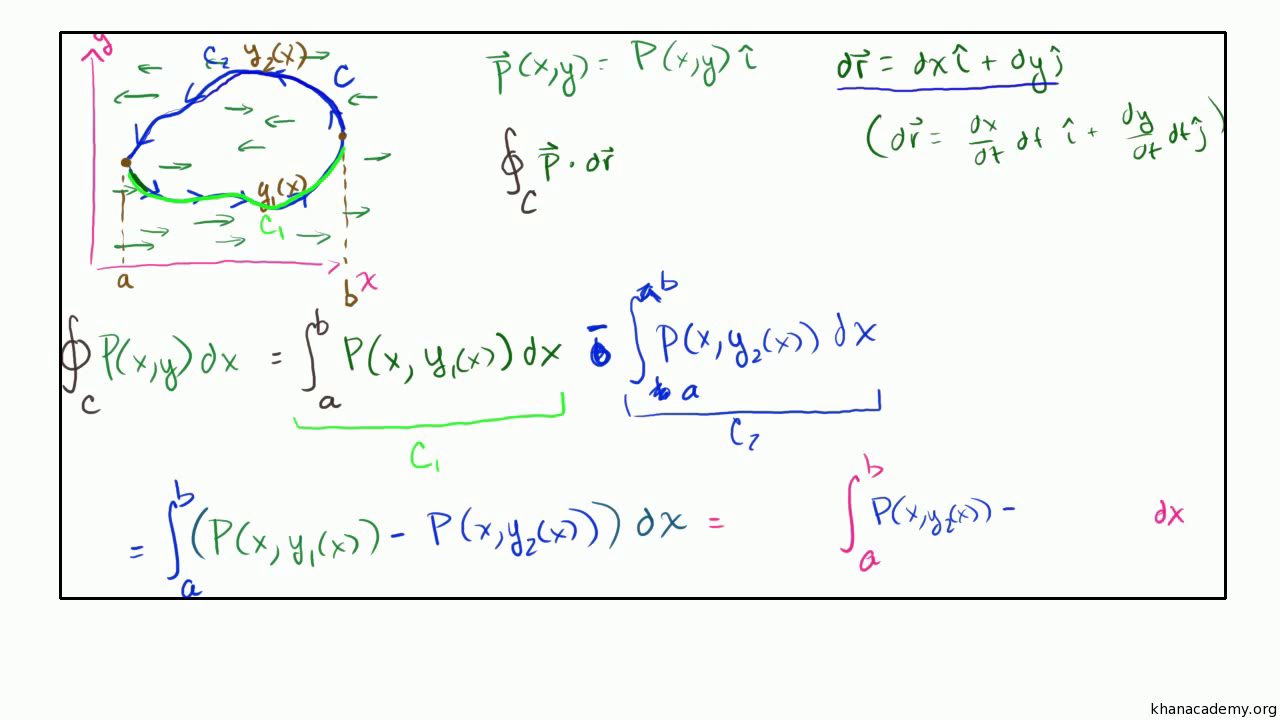 y
C₂ y₂(x)
C
y₁(x)
C₁
a
b x
P⃗(x,y) = P(x,y) î
dr⃗ = dx î + dy ĵ
(dr⃗ = dx/dt dt î + dy/dt dt ĵ)
∮_C P⃗ · dr⃗
∮_C P(x,y) dx = ∫_a^b P(x, y₁(x)) dx - ∫_a^b P(x, y₂(x)) dx
C₁ C₂
= ∫_a^b (P(x, y₁(x)) - P(x, y₂(x))) dx = ∫_a^b P(x, y₂(x)) - dx
khanacademy.org